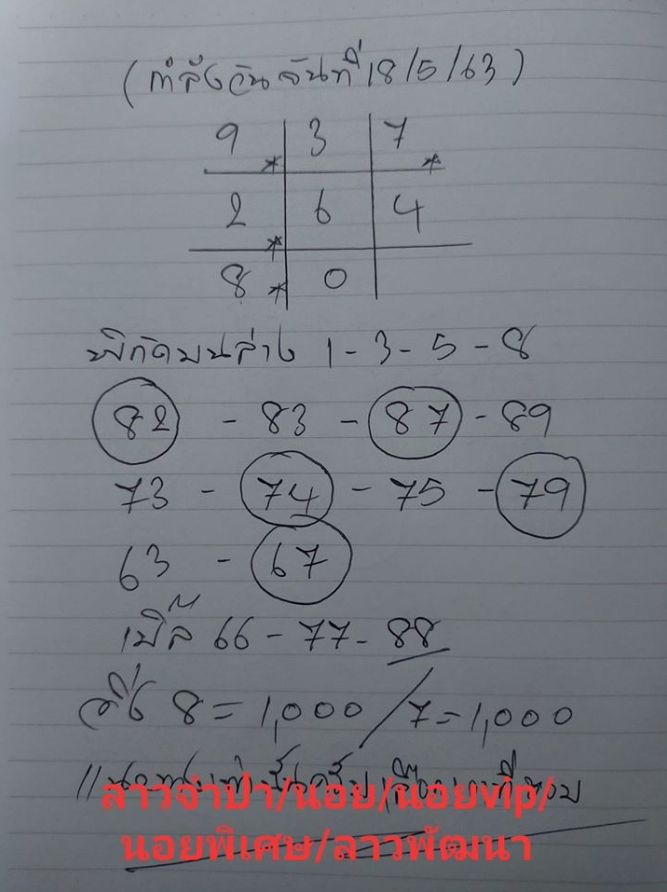 (กำลังวันจันที่ 18/5/63)
9 * 3 7 *
2 * 6 4
8 * 0
พิกัดบนล่าง 1 - 3 - 5 - 8
82 - 83 - 87 - 89
73 - 74 - 75 - 79
63 - 67
เบิ้ล 66 - 77 - 88
วิ่ง 8 = 1,000 / 7 = 1,000
ลาวจำปา/นอย/นอยvip/
นอยพิเศษ/ลาวพัฒนา